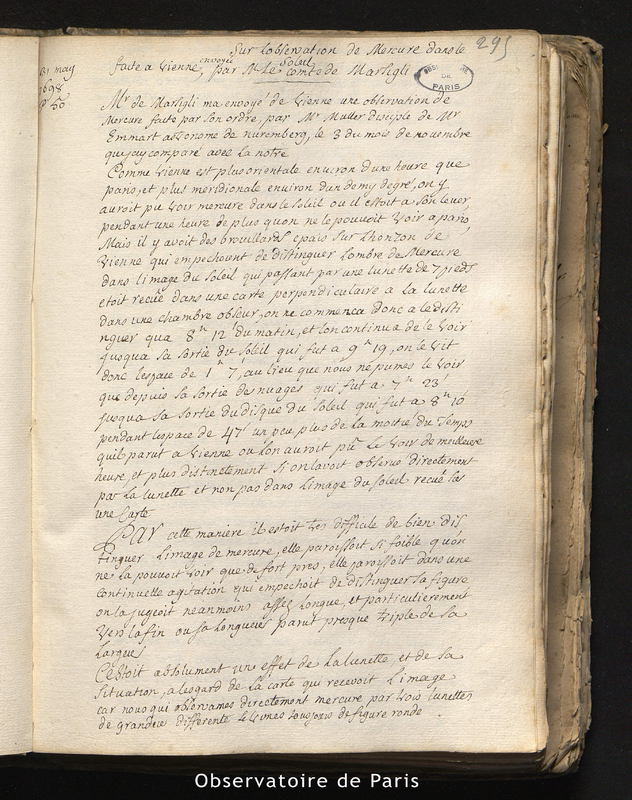 31 may
1698
Sur l'observation de Mercure dans le
Soleil
295
faite a Vienne, envoyée par Mr Le Comte de Marsigli
OBSERVATOIRE
DE
PARIS
Mr de Marsigli ma envoyé de Vienne une observation de
Mercure faite par son ordre, par Mr Muller disciple de Mr
Emmart astronome de nuremberg, le 3 du mois de novembre
que jay comparé avec la notre
Comme Vienne est plus orientale environ d'une heure que
paris, et plus meridionale environ d'un demy degré, on y
auroit pu voir mercure dans le soleil ou il estoit a son lever
pendant une heure de plus quon ne le pouvoit voir a paris,
Mais il y avoit des brouillards epais sur l'horizon de
Vienne qui empechoient de distinguer l'ombre de Mercure
dans l'image du soleil qui passant par une lunette de 7 pieds
etoit recuë dans une carte perpendiculaire a la lunette
dans une chambre obscur, on ne commenca donc a le disti
nguer qua 8h 12' du matin, et l'on continua de le voir
jusqua sa sortie du soleil qui fut a 9h 19, on le vit
donc lespace de 1h 7', au lieu que nous ne pumes le voir
que depuis sa sortie des nuages qui fut a 7h 23'
jusqua sa sortie du disque du soleil qui fut a 8h 10'
pendant lespace de 47' un peu plus de la moitié du temps
quil parut a Vienne ou lon auroit pu le voir de meilleure
heure, et plus distinctement si on lavoit observé directement
par la lunette et non pas dans limage du soleil recuë sur
une carte
Par cette maniere il estoit tres difficile de bien dis
tinguer limage de mercure, elle paroissoit si foible quon
ne la pouvoit voir que de fort pres, elle paroissoit dans une
continuelle agitation qui empechoit de distinguer sa figure
on la jugeoit neanmoins assez longue, et particulierement
vers la fin ou sa longueur parut presque triple de sa
largeur
C'estoit absolument un effet de la lunette, et de sa
situation, a lesgard de la carte qui recevoit l'image
car nous qui observames directement mercure par trois lunettes
de grandeur differente le vimes toujours de figure ronde.
Observatoire de Paris